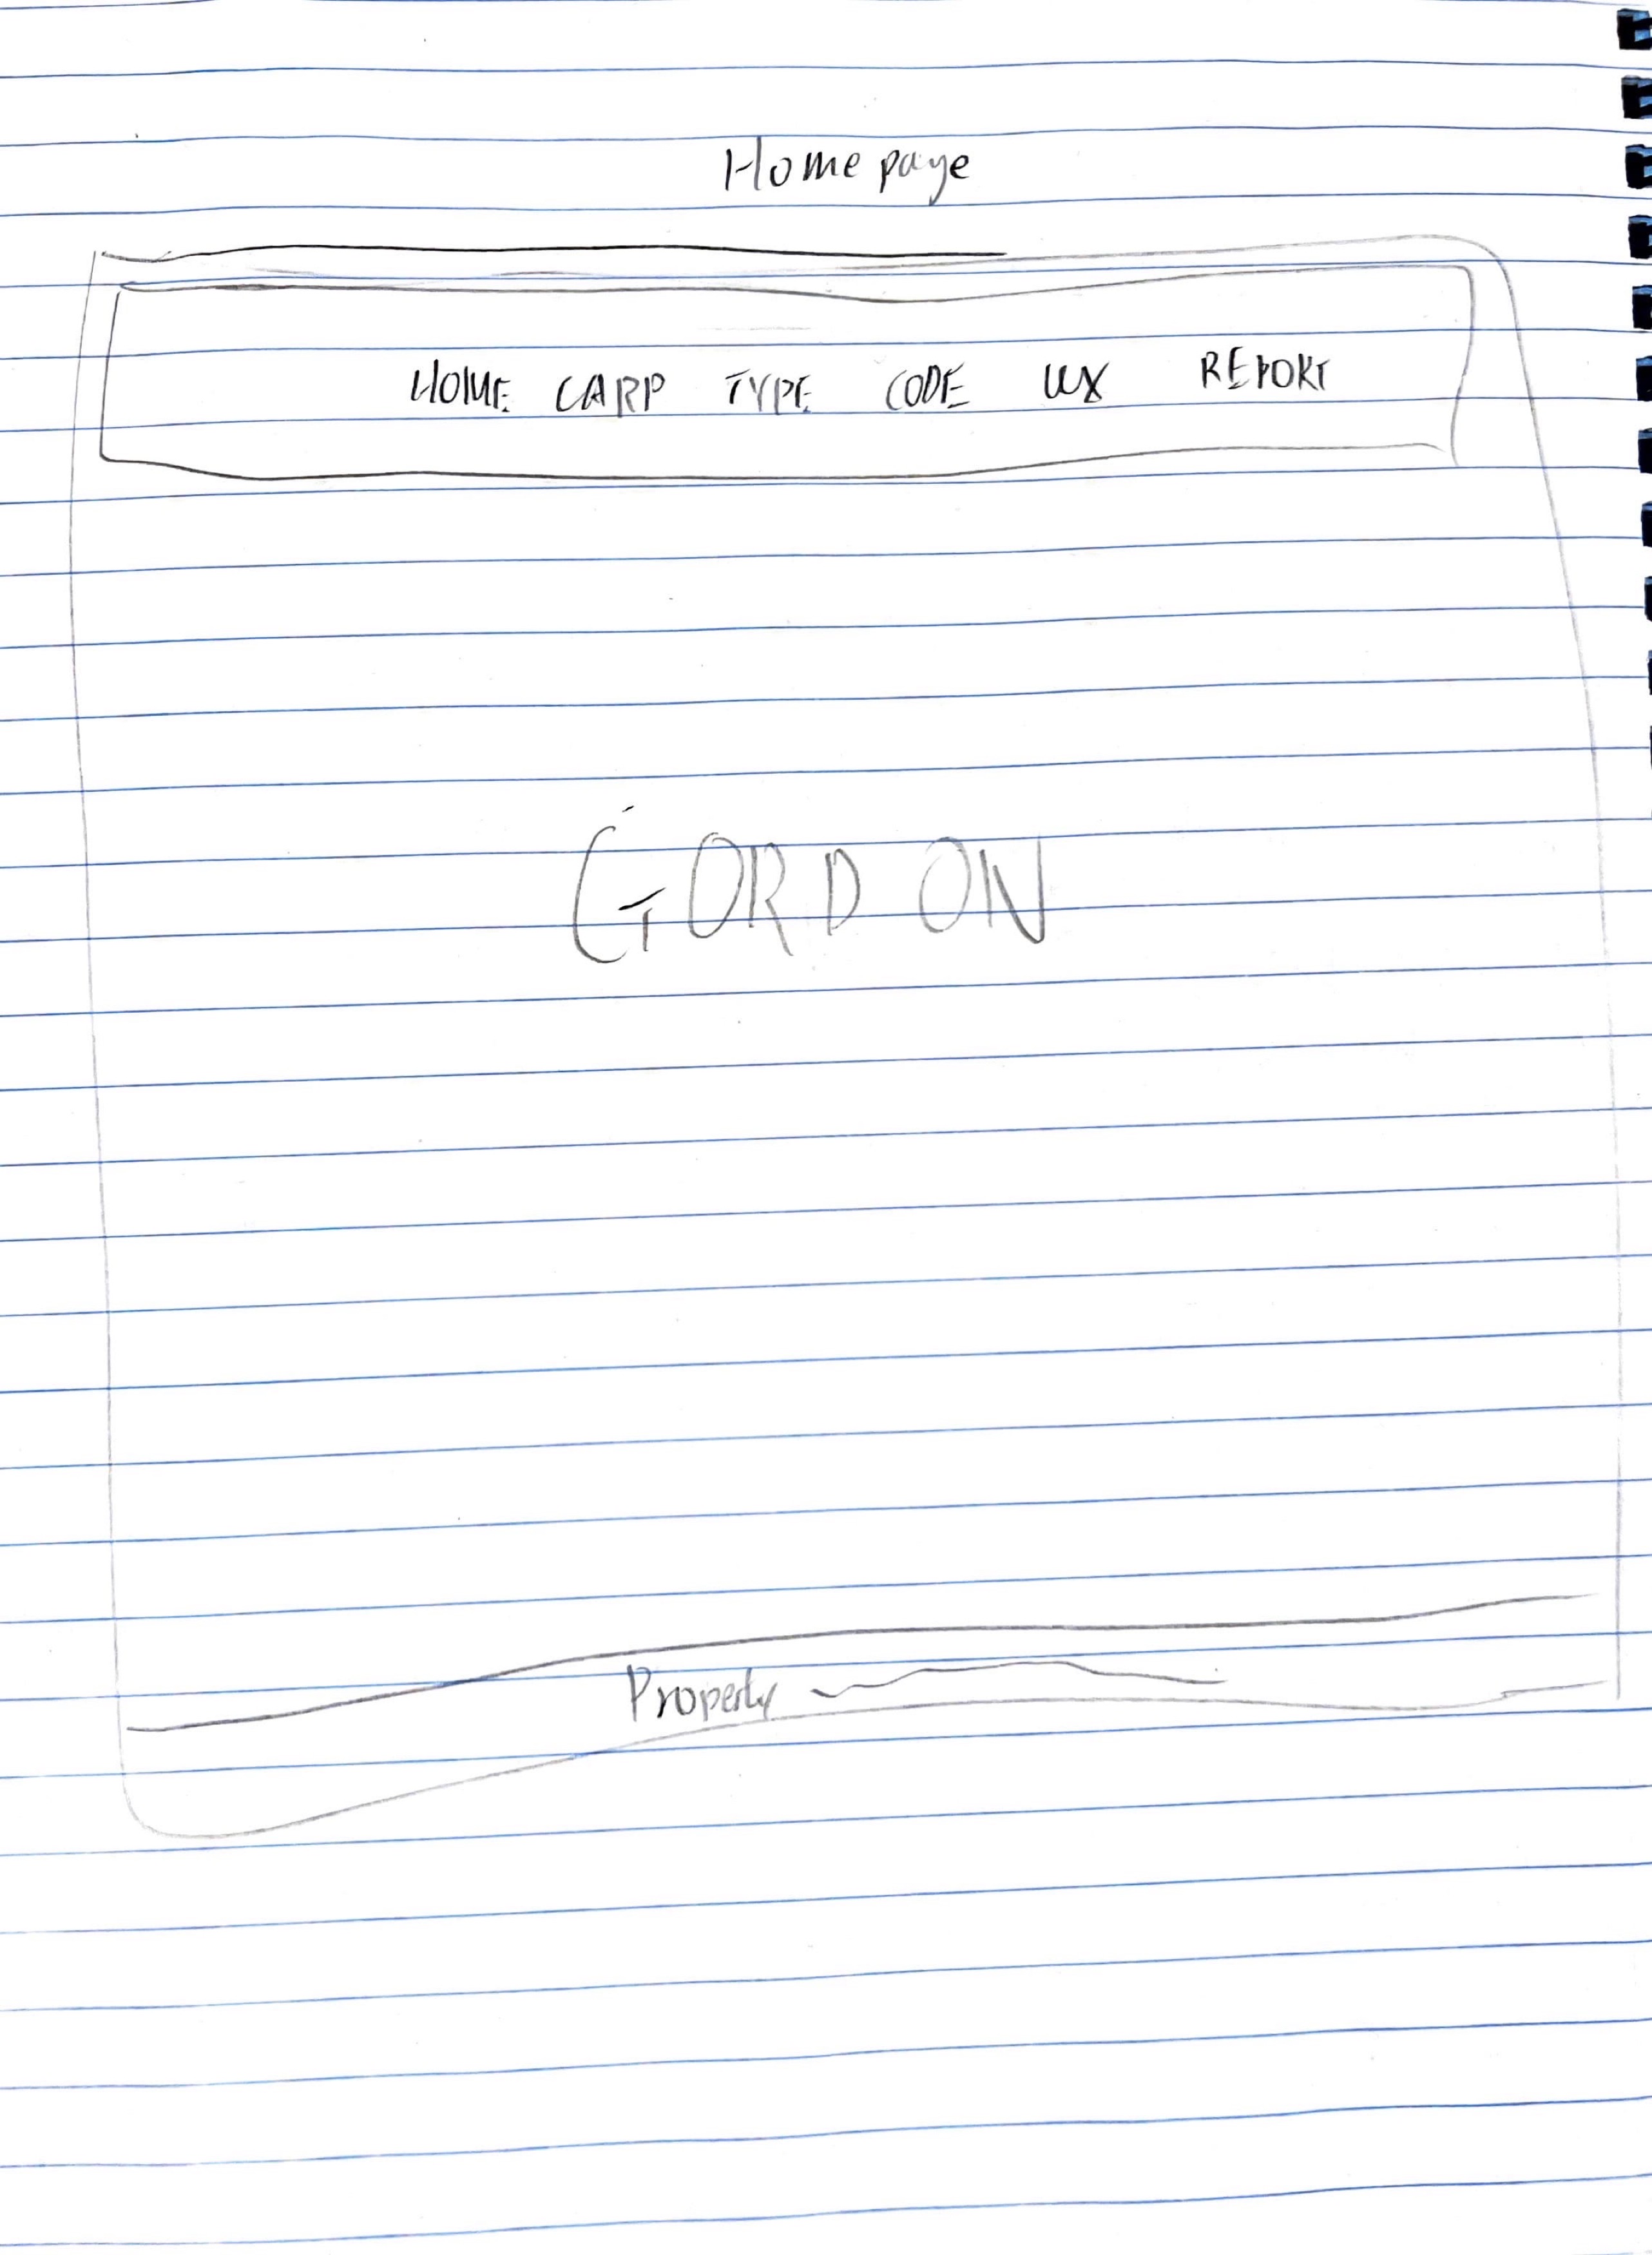 Homepage
HOME CARP TYPE CODE UX REPORT
GORDON
Property